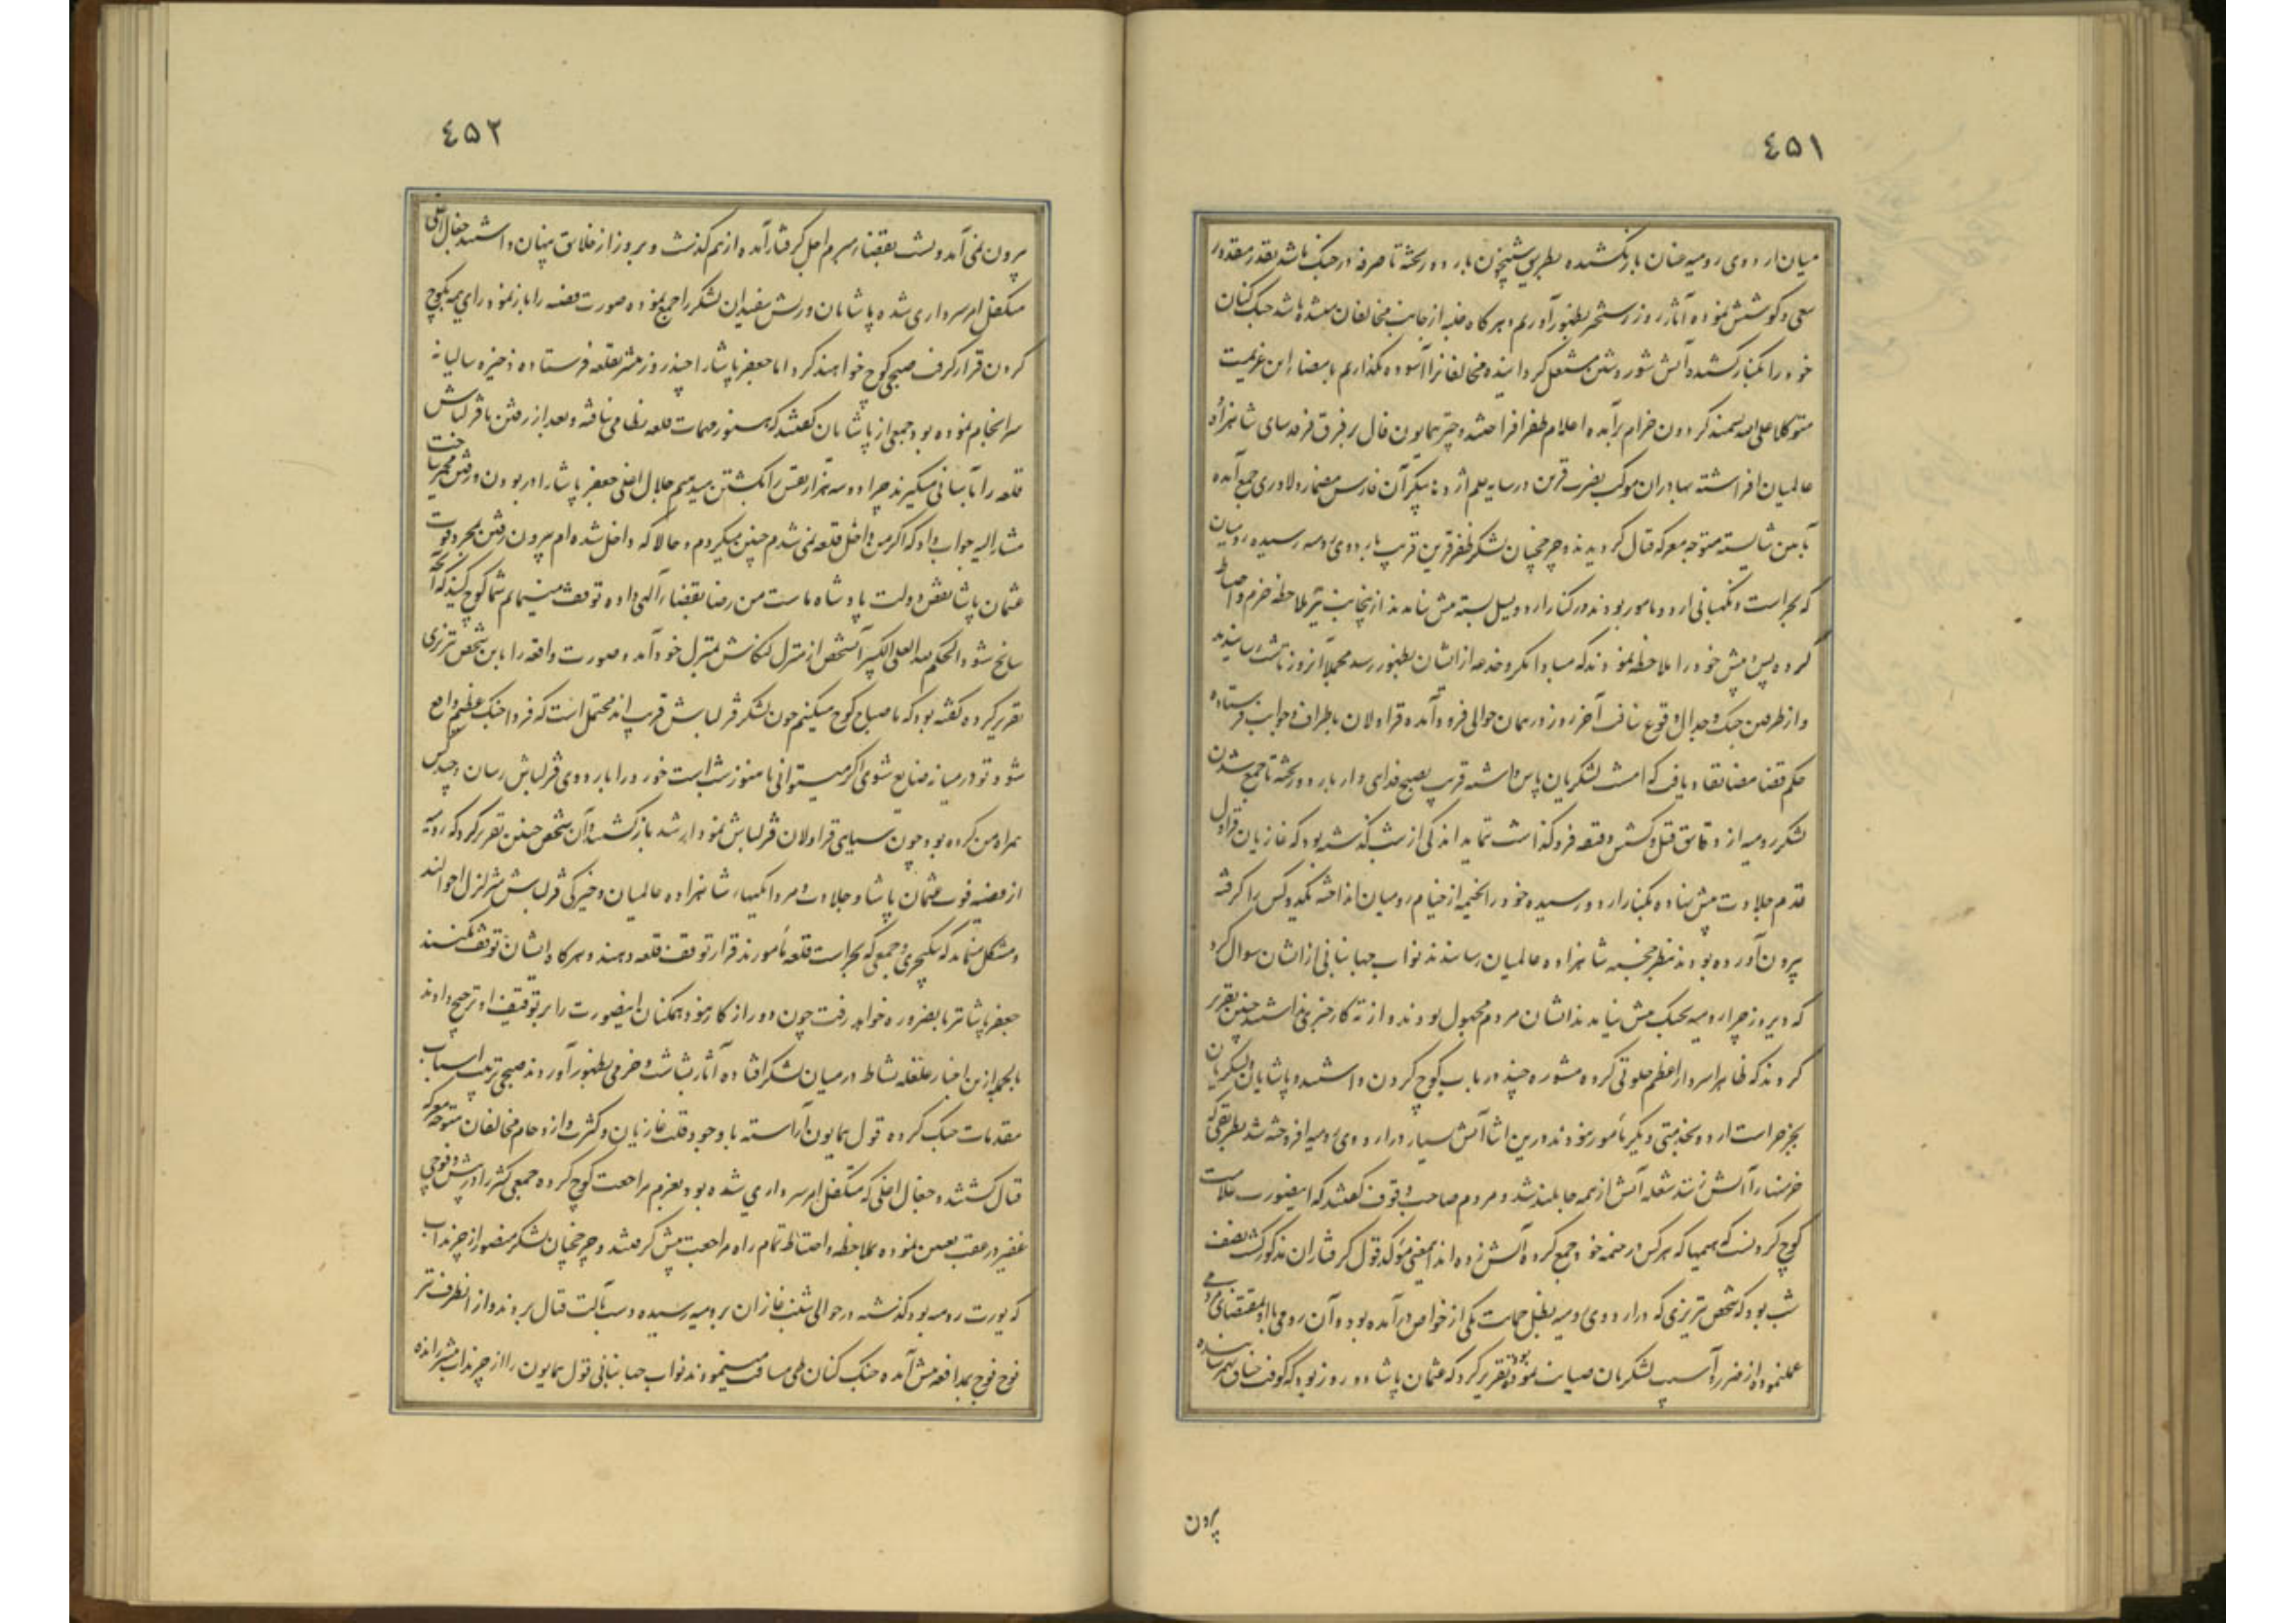 ٤٥١
میان اردوی رومیه عنان باز نکشیده بطریق شبیخون باردو ریخته تا صرفه در جنک باشد بقدر مقدور
سعی و کوشش نموده آثار روز رستخیز بظهور آوریم و هر کاه غلبه از جانب مخالفان مشاهده باشد جنک کنان
خود را بکنار کشیده آتش شور و شین مشتعل کردانیده مخالفانرا آسوده نکذاریم بامضاء این عزیمت
متوکلا علی الله سمند کردون خرام برآمده اعلام ظفر افراختند و چتر همایون فال بر فرق فرقدسای شاهزاده
عالمیان افراشته بهادران موکب نصرت قرین در سایه علم اژدها پیکر آن فارس مضمار دلاوری جمع آمده
بآیین شایسته متوجه معرکه قتال کردیدند و چرخچیان لشکر ظفر قرین قریب باردوی رومیه رسیده رومیان
که بحراست و نکهبانی اردو مامور بودند در کنار اردو یسل بسته پیش نیامدند از اینجانب نیز ملاحظه حزم و احتیاط
کرده پس و پیش خود را ملاحظه نمودند که مبادا مکر و خدعه از ایشان بظهور رسد مجملا آنروز تا شب رسانیدند
و از طرفین جنک و جدال وقوع نیافت آخر روز در همان حوالی فرود آمده قراولان باطراف و جوانب فرستاده
حکم قضا مضا نفاد یافت که امشب لشکریان پاس داشته قریب بصبح فدایی وار باردو ریخته تا جمع شدن
لشکر رومیه از دقایق قتل و کشش دقیقه فروکذاشت ننمایند اندکی از شب کذشته بود که غازیان قراول
قدم جلادت پیش نهاده بکنار اردو رسیده خود را بخیمه از خیام رومیان انداخته یکدوکس را کرفته
بیرون آورده بودند بنظر خجسته شاهزاده عالمیان رسانیدند نواب جهانبانی از ایشان سوال کرد
که دیروز چرا رومیه بجنک پیش نیامدند ایشان مردم مجهول بودند و از ته کار خبری نداشتند چنین تقریر
کردند که ظاهرا سردار اعظم خلوتی کرده مشوره چند در باب کوچ کردن داشتند و پاشایان و لشکریان
بجز حراست اردو بخدمتی دیکر مأمور نبودند درین اثنا آتش بسیار در اردوی رومیه افروخته شد بطریقی که
خرمنها را آتش زنند شعله آتش از همه جا بلند شد و مردم صاحب وقوف کفتند که اینصورت علامت
کوچ کردنست که هیمها که هرکس در خیمه خود جمع کرده آتش زده اند اینمعنی مؤکد قول کرفتاران مذکور کشت نصف
شب بود که شخص تبریزی که در اردوی رومیه بطفل حمایت یکی از خواص درآمده بود و آن رومی با او بمقتضای مردمی
عملنموده از ضرر و آسیب لشکریان صیانت نموده بود تقریر کرد که عثمان پاشا دو روز بود که کوفت خناق بهم رسانیده
بیرون
٤٥٢
بیرون نمی آمد و شب بقضاء مبرم اجل کرفتار آمده از هم کذشت و بروز از خلایق پنهان داشتند جغال اغلی
متکفل امر سرداری شده پاشایان و ریش سفیدان لشکر را جمع نموده صورت قضیه را باز نمود رای همه بکوچ
کردن قرار کرفت صبحی کوچ خواهند کرد اما جعفر پاشا را چند روز پیشتر بقلعه فرستاده ذخیره سالیانه
سرانجام نموده بود جمعی از پاشایان کفتند که هنوز مهمات قلعه نظامی نیافته و بعد از رفتن ما قزلباش
قلعه را بآسانی میکیرند چرا دو سه هزار نفس را بکشتن میدهیم جغال اغلی جعفر پاشا را در بودن و رفتن مخیر ساخت
مشارالیه جواب داد که اکر من داخل قلعه نمی شدم چنین میکردم و حالا که داخل شده ام بیرون رفتن بمجرد فوت
عثمان پاشا نقض دولت پادشاه ماست من رضا بقضاء الهی داده توقف مینمایم شما کوچ کنید که آنچه
سانح شود الحکم لله العلی الکبیر آنشخص از منزل کنکاش بمنزل خود آمده صورت واقعه را باین شخص تبریزی
تقریر کرده کفته بود که ما صباح کوچ میکنیم چون لشکر قزلباش قریب اند محتمل است که فردا جنک عظیم واقع
شود تو در میانه ضایع شوی اکر میتوانی تا هنوز شب است خود را باردوی قزلباش رسان و چند کس
همراه من کرده بود چون سیاهی قراولان قزلباش نمودار شد بازکشتند و آن شخص چنین تقریر کرد که رومیه
از قضیه فوت عثمان پاشا و جلادت و مردانکیهاء شاهزاده عالمیان و خیرکی قزلباش متزلزل احوالند
و مشکل مینماید که ینکچری و جمعی که بحراست قلعه مأمورند قرار توقف قلعه دهند و هرکاه ایشان توقف نکنند
جعفر پاشا نیز بالضروره خواهد رفت چون دور از کار نبود همکنان اینصورت را بر توقیف او ترجیح دادند
بالجمله ازین اخبار غلغله نشاط در میان لشکر افتاده آثار بشاشت و خرمی بظهور آوردند صبحی ترتیب اسباب
مقدمات جنک کرده قول همایون آراسته با وجود قلت غازیان و کثرت و ازدحام مخالفان متوجه معرکه
قتال کشتند و جغال اغلی که متکفل امر سرداری شده بود بعزم مراجعت کوچ کرده جمعی کثیر را در پیش و فوجی
غفیر در عقب تعیین نموده بملاحظه و احتیاط تمام راه مراجعت پیش کرفتند و چرخچیان لشکر منصور از چرنداب
که یورت رومیه بود کذشته در حوالی شنب غازان برومیه رسیده دست بآلت قتال بردند و از انطرف نیز
فوج فوج بمدافعه پیش آمده جنک کنان طی مسافت مینمودند نواب جهانبانی قول همایون را از چرنداب پیشتر رانده